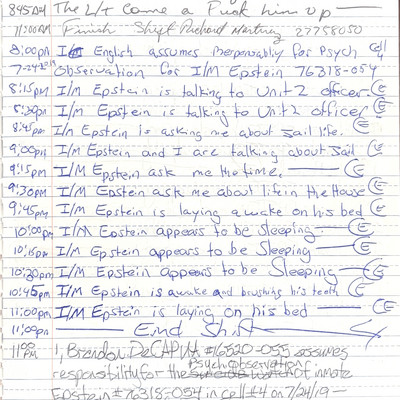 845AM The L/t Came a Pick him up
11:00AM Finish Shift Richard 27758050
8:00pm I/M English assumes Responsablity for Psych Cell 4
7-24-2019 Observation for I/M Epstein 76318-054
8:15pm I/m Epstein is talking to Unit 2 officer CE
8:30pm I/m Epstein is talking to Unit 2 officer CE
8:45pm I/m Epstein is asking me about Jail life. CE
9:00pm I/m Epstein and I are talking about Jail CE
9:15pm I/M Epstein ask me the time. CE
9:30pm I/M Epstein ask me about life in the House CE
9:45pm I/M Epstein is laying awake on his bed CE
10:00pm I/M Epstein appears to be sleeping CE
10:15pm I/m Epstein appears to be sleeping CE
10:30pm I/m Epstein appears to be Sleeping CE
10:45pm I/m Epstein is awake and brushing his teeth CE
11:00pm I/m Epstein is laying on his bed CE
11:00pm End Shift
11:00 PM I, Brendon #16520-055 assumes
Psych observation
responsibility for the of inmate
Epstein #76318-054 in cell #4 on 7/24/19